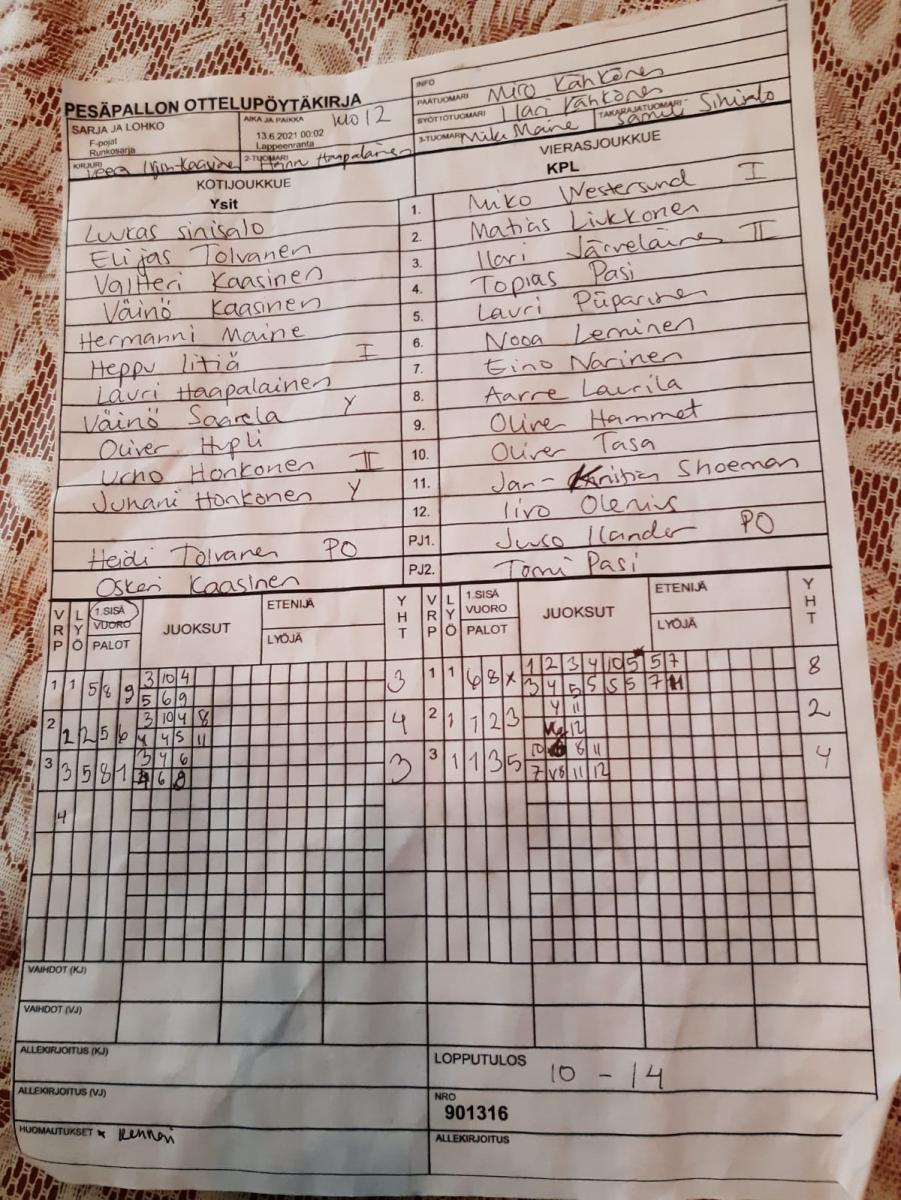 PESÄPALLON OTTELUPÖYTÄKIRJA
INFO
PÄÄTUOMARI Miro Kähkönen
SYÖTTÖTUOMARI Ilari Kähkönen TAKARAJATUOMARI Samu Sinisalo
3-TUOMARI Miku Maine
SARJA JA LOHKO
F-pojat
Runkosarja
AIKA JA PAIKKA
13.6.2021 00:02
Lappeenranta
KIRJURI Veera
2-TUOMARI Haapalainen
KOTIJOUKKUE
Ysit
VIERASJOUKKUE
KPL
Luukas sinisalo 1. Miko Westersund I
Elijas Tolvanen 2. Matias Liukkonen
Valtteri Kaasinen 3. Ilari Järveläinen II
Väinö Kaasinen 4. Topias Pasi
Hermanni Maine 5. Lauri Püparinen
Heppu Iitiä I 6. Nooa Leminen
Lauri Haapalainen 7. Eino Narinen
Väinö Saarela Y 8. Aarre Laurila
Oliver Hupli 9. Oliver Hammet
Urho Honkonen II 10. Oliver Tasa
Juhani Honkonen Y 11. Jan-Kristian Shoeman
12. Iivo Olenius
Heidi Tolvanen PO PJ1. Juuso Ilander PO
Oskeri Kaasinen PJ2. Tomi Pasi
VRP LYÖ 1.SISÄ VUORO PALOT JUOKSUT ETENIJÄ LYÖJÄ YHT VRP LYÖ 1.SISÄ VUORO PALOT JUOKSUT ETENIJÄ LYÖJÄ YHT
1 1 5 8 9 3 10 4 3 1 1 6 8 x 1 2 3 4 10 5 5 7 8
5 6 9 3 4 5 5 5 5 7
2 2 2 5 6 3 10 4 8 4 2 1 1 2 3 4 11 2
4 5 11 12
3 3 5 8 1 3 4 6 3 3 1 1 3 5 10 8 11 4
6 8 7 11 12
4
VAIHDOT (KJ)
VAIHDOT (VJ)
ALLEKIRJOITUS (KJ)
LOPPUTULOS 10 - 14
ALLEKIRJOITUS (VJ)
NRO
901316
HUOMAUTUKSET * kunnari
ALLEKIRJOITUS